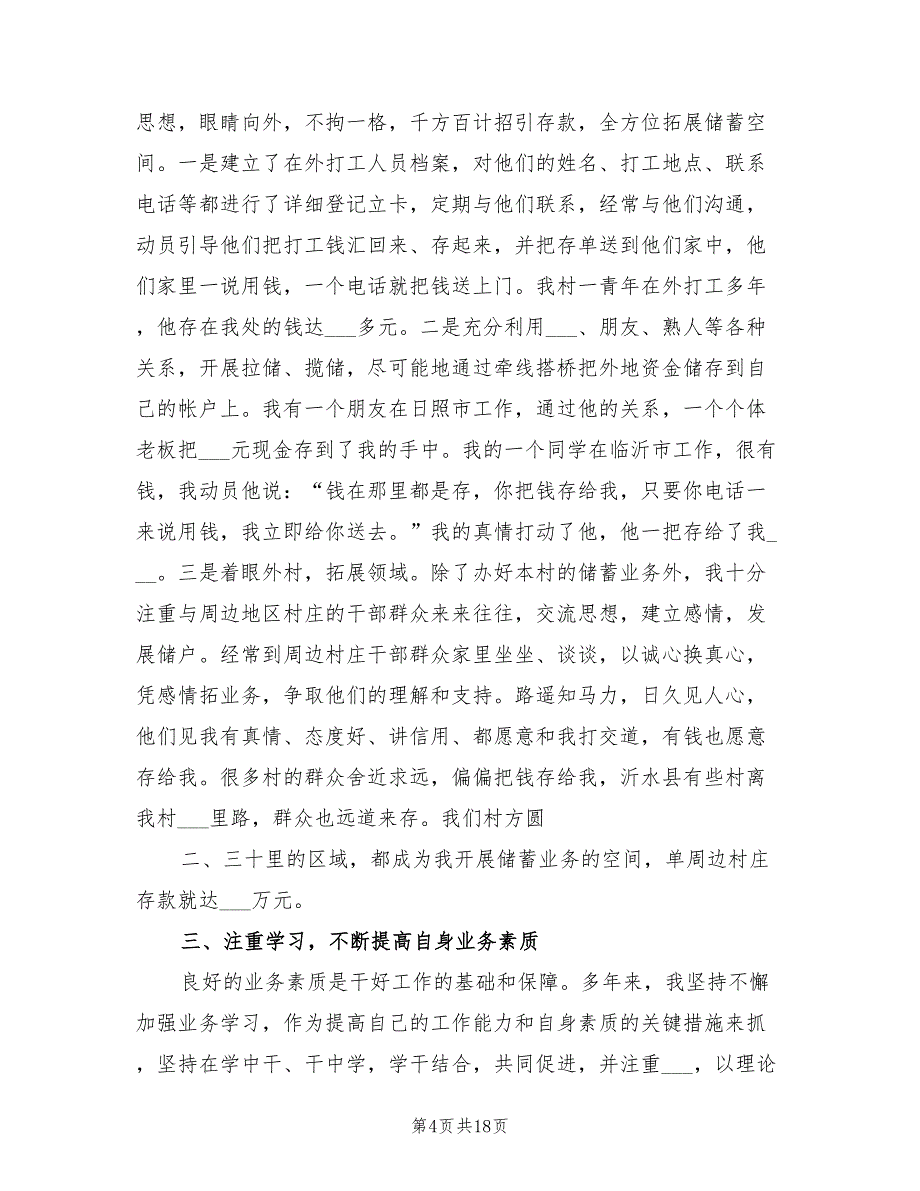 思想，眼睛向外，不拘一格，千方百计招引存款，全方位拓展储蓄空
间。一是建立了在外打工人员档案，对他们的姓名、打工地点、联系
电话等都进行了详细登记立卡，定期与他们联系，经常与他们沟通，
动员引导他们把打工钱汇回来、存起来，并把存单送到他们家中，他
们家里一说用钱，一个电话就把钱送上门。我村一青年在外打工多年
，他存在我处的钱达___多元。二是充分利用___、朋友、熟人等各种
关系，开展拉储、揽储，尽可能地通过牵线搭桥把外地资金储存到自
己的帐户上。我有一个朋友在日照市工作，通过他的关系，一个个体
老板把___元现金存到了我的手中。我的一个同学在临沂市工作，很有
钱，我动员他说：“钱在那里都是存，你把钱存给我，只要你电话一
来说用钱，我立即给你送去。”我的真情打动了他，他一把存给了我_
__。三是着眼外村，拓展领域。除了办好本村的储蓄业务外，我十分
注重与周边地区村庄的干部群众来来往往，交流思想，建立感情，发
展储户。经常到周边村庄干部群众家里坐坐、谈谈，以诚心换真心，
凭感情拓业务，争取他们的理解和支持。路遥知马力，日久见人心，
他们见我有真情、态度好、讲信用、都愿意和我打交道，有钱也愿意
存给我。很多村的群众舍近求远，偏偏把钱存给我，沂水县有些村离
我村___里路，群众也远道来存。我们村方圆
二、三十里的区域，都成为我开展储蓄业务的空间，单周边村庄
存款就达___万元。
三、注重学习，不断提高自身业务素质
良好的业务素质是干好工作的基础和保障。多年来，我坚持不懈
加强业务学习，作为提高自己的工作能力和自身素质的关键措施来抓
，坚持在学中干、干中学，学干结合，共同促进，并注重___，以理论
第4页共18页